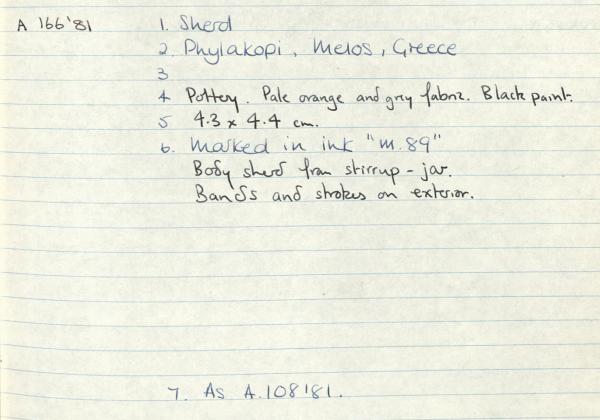 A 166'81 1. Sherd
2. Phylakopi, Melos, Greece
3
4 Pottery. Pale orange and grey fabric. Black paint.
5 4.3 x 4.4 cm.
6. Marked in ink "M.89"
Body sherd from stirrup-jar.
Bands and strokes on exterior.
7. As A.108'81.